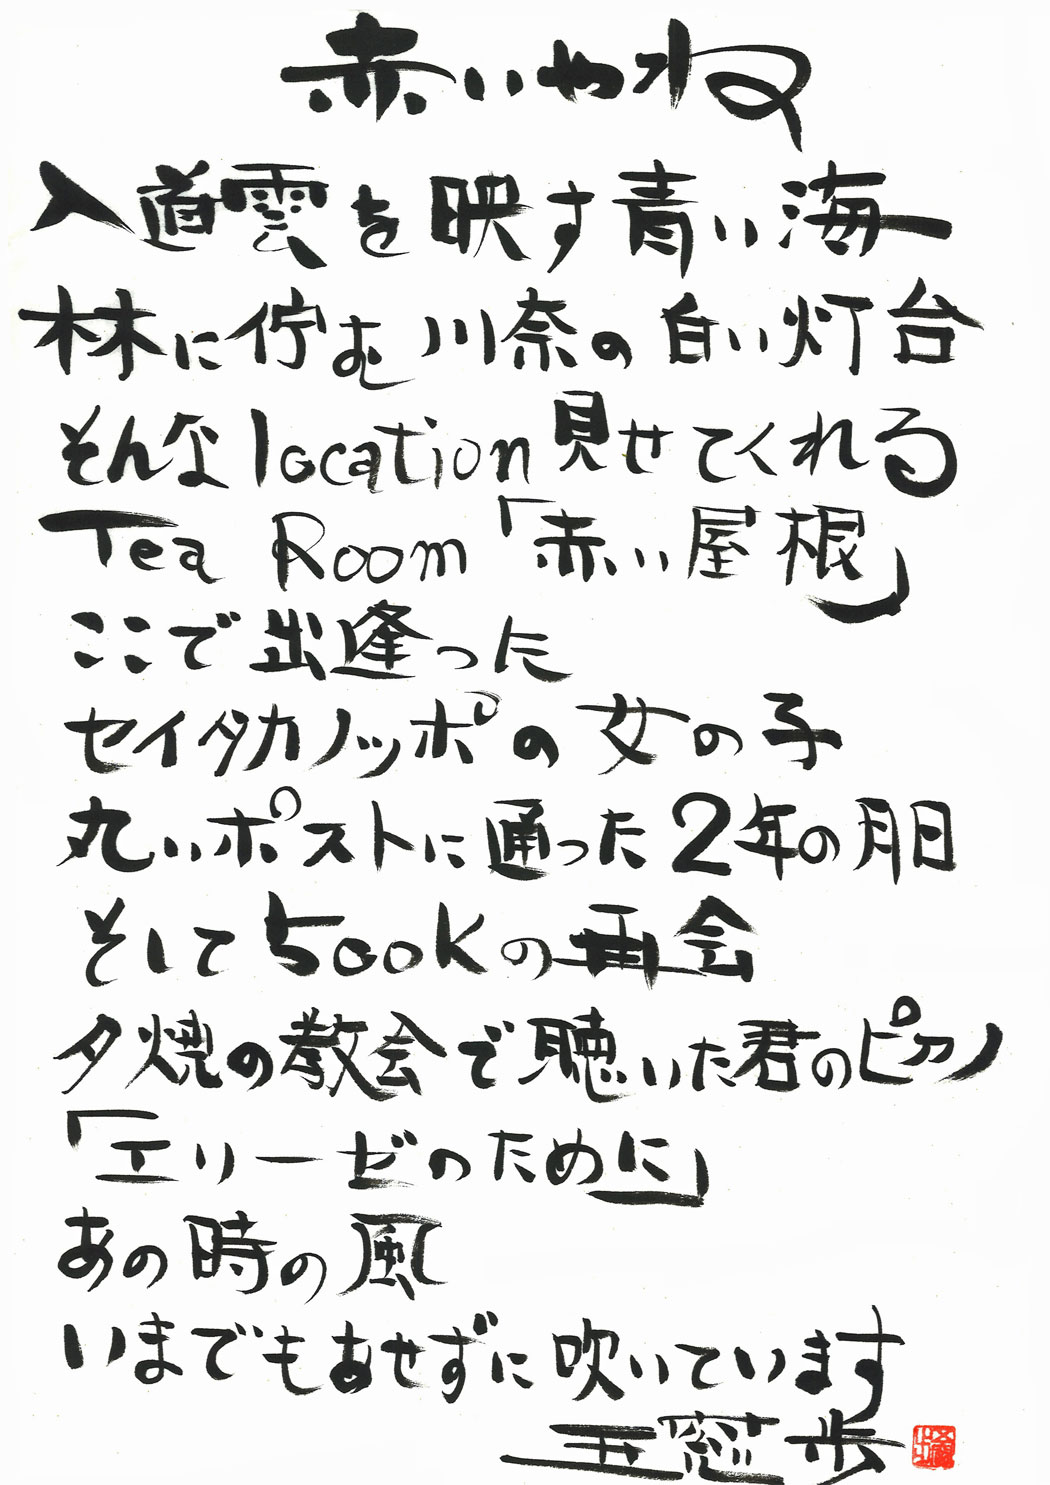 赤いやね
入道雲を映す青い海
林に佇む川奈の白い灯台
そんなlocation見せてくれる
Tea Room「赤い屋根」
ここで出逢った
セイタカノッポの女の子
丸いポストに通った2年の月日
そして500Kの再会
夕焼の教会で聴いた君のピアノ
「エリーゼのために」
あの時の風
いまでもあせずに吹いています
五窓歩